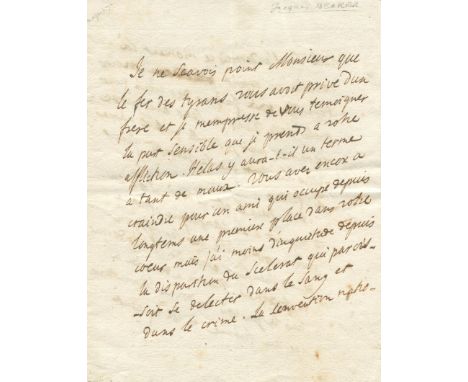 Jacques NECKER
Je ne scavois point Monsieur que
le fer des tyrans vous avoit privé d'un
frere et je m'empresse de vous temoigner
la part sensible que je prends a votre
affliction. Helas y aura-t-il un terme
a tant de maux. Vous avez encor a
craindre pour un ami qui occupe depuis
longtems une premiere place dans votre
coeur mais j'ai moins d'inquietude depuis
la disparition du scelerat qui parois-
-soit se delecter dans le sang et
dans le crime. La convention